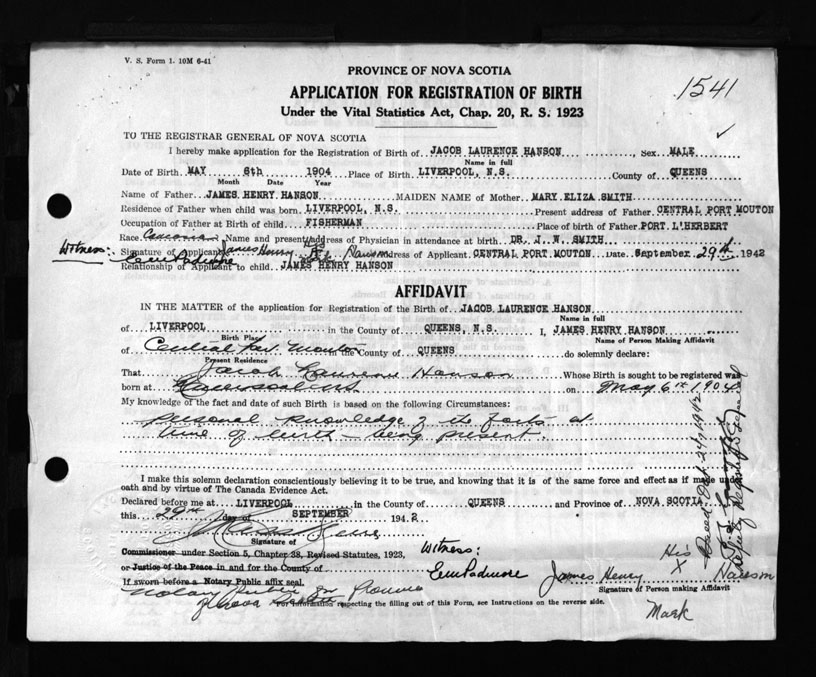 V. S. Form 1. 10M 6-41
PROVINCE OF NOVA SCOTIA
APPLICATION FOR REGISTRATION OF BIRTH
1541
Under the Vital Statistics Act, Chap. 20, R. S. 1923
✓
TO THE REGISTRAR GENERAL OF NOVA SCOTIA
I hereby make application for the Registration of Birth of JACOB LAURENCE HANSON, Sex MALE
Name in full
Date of Birth MAY 6th 1904 Place of Birth LIVERPOOL, N.S. County of QUEENS
Month Date Year
Name of Father JAMES HENRY HANSON MAIDEN NAME of Mother MARY ELIZA SMITH
Residence of Father when child was born LIVERPOOL, N.S. Present address of Father CENTRAL PORT MOUTON
Occupation of Father at Birth of child FISHERMAN Place of birth of Father PORT L'HERBERT
Race Name and present Address of Physician in attendance at birth DR. J. W. SMITH
Witness: Signature of Applicant James Henry His X Hanson Address of Applicant CENTRAL PORT MOUTON Date September 29th 1942
Relationship of Applicant to child JAMES HENRY HANSON
AFFIDAVIT
IN THE MATTER of the application for Registration of the Birth of JACOB LAURENCE HANSON
Name in full
of LIVERPOOL in the County of QUEENS, N.S. I, JAMES HENRY HANSON
Birth Place Name of Person Making Affidavit
of Central Port Mouton in the County of QUEENS do solemnly declare:
Present Residence
That Jacob Laurence Hanson Whose Birth is sought to be registered was
born at on May 6th 1904
My knowledge of the fact and date of such Birth is based on the following Circumstances:
Personal knowledge of the facts at
time of birth - being present.
I make this solemn declaration conscientiously believing it to be true, and knowing that it is of the same force and effect as if made under
oath and by virtue of The Canada Evidence Act.
Declared before me at LIVERPOOL in the County of QUEENS and Province of NOVA SCOTIA
this 29th day of SEPTEMBER 1942
Signature of
Commissioner under Section 5, Chapter 38, Revised Statutes, 1923,
Witness:
or Justice of the Peace in and for the County of
E m Padmore
James Henry His X Hanson
Mark
If sworn before a Notary Public affix seal.
Signature of Person making Affidavit
Notary Public for Province
For information respecting the filling out of this Form, see Instructions on the reverse side.